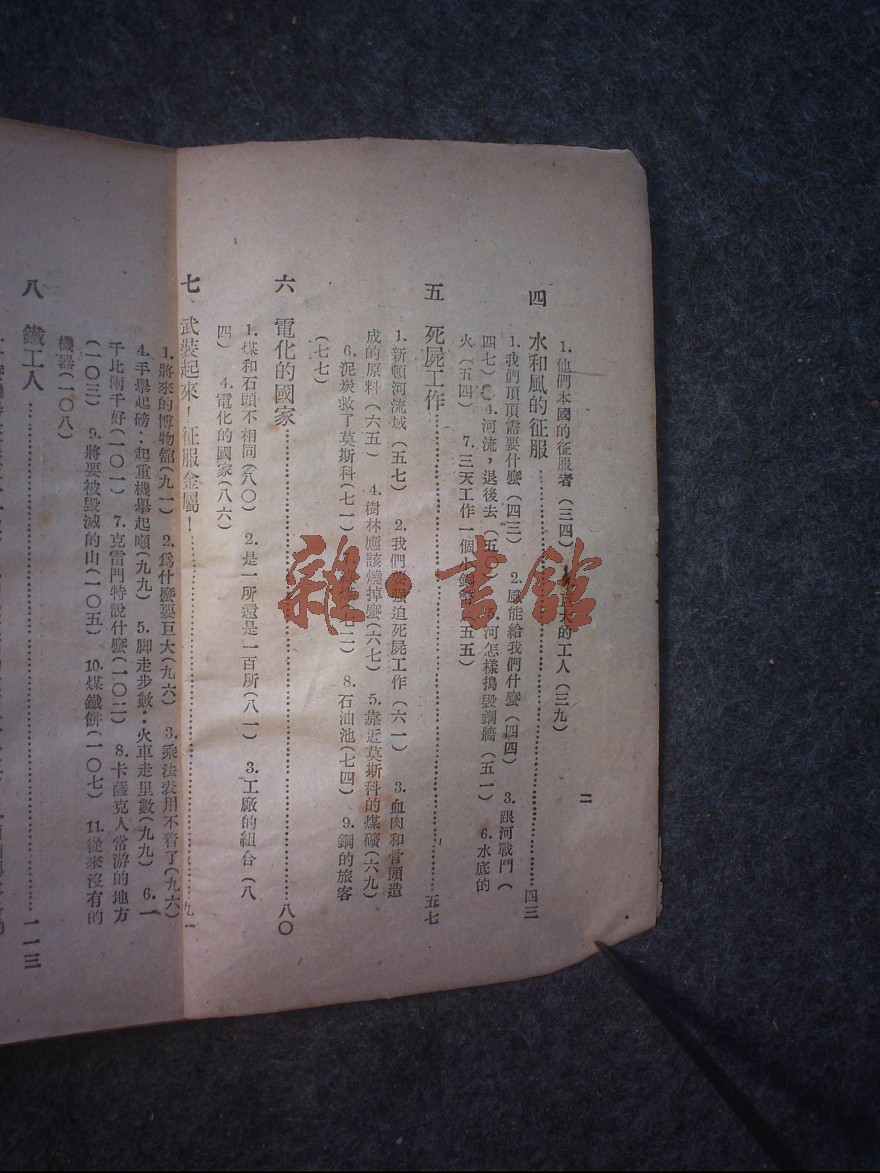 二
1. 他們本國的征服者(三四) 百大的工人(三九)
四 水和風的征服……四三
1. 我們頂頂需要什麼(四三) 2. 風能給我們什麼(四四) 3. 跟河戰鬥(
四七) 4. 河流，退後去(五〇) 河怎樣搗毀鋼牆(五一) 6. 水底的
火(五四) 7. 三天工作一個 五五)
五 死屍工作……五七
1. 新頓河流域(五七) 2. 我們要强迫死屍工作(六一) 3. 血肉和骨頭造
成的原料(六五) 4. 樹林應該燒掉麼(六七) 5. 靠近莫斯科的煤礦(六九)
6. 泥炭救了莫斯科(七一) 二) 8. 石油池(七四) 9. 鋼的旅客
(七七)
六 電化的國家……八〇
1. 煤和石頭不相同(八〇) 2. 是一所還是一百所(八一) 3. 工廠的組合(八
四) 4. 電化的國家(八六)
七 武裝起來！征服金屬！……九一
1. 將來的博物館(九一) 2. 爲什麼要巨大(九六) 3. 乘法表用不着了(九六)
4. 手舉起磅：起重機舉起噸(九九) 5. 脚走步數：火車走里數(九九) 6. 一
千比兩千好(一〇一) 7. 克雷門特說什麼(一〇二) 8. 卡薩克人常游的地方
(一〇三) 9. 將要被毀滅的山(一〇五) 10. 煤鐵餅(一〇七) 11. 從來沒有的
機器(一〇八)
八 鐵工人……一一三
雜·書館